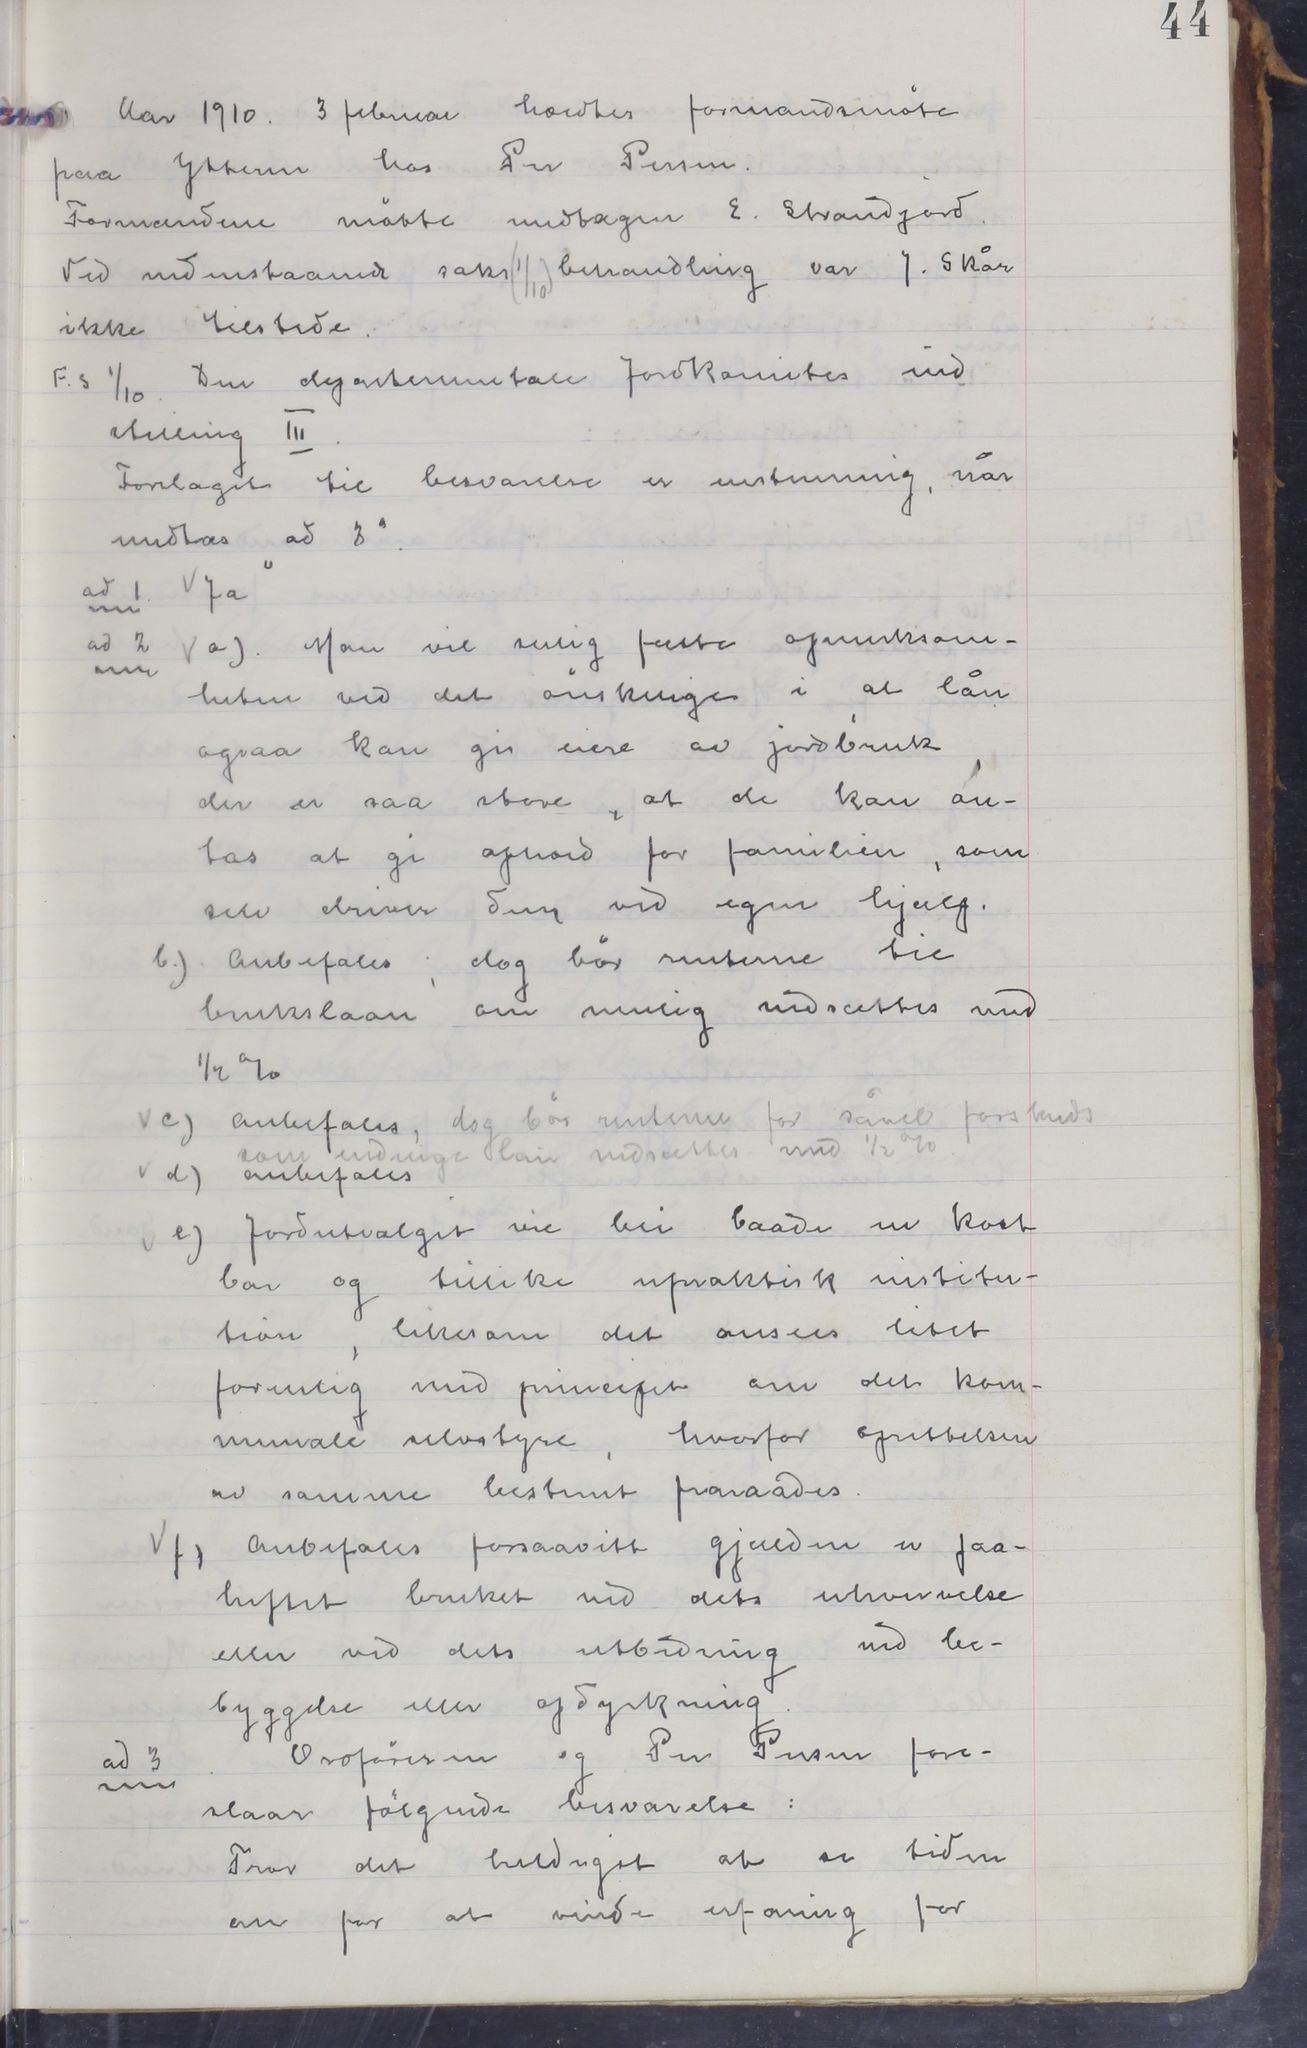 44
Aar 1910. 3 februar holdtes formandsmöte
paa Ytteren hos Per Persen.
Formændene mötte undtagen E. Strandjord.
Ved nedenstaaende saks (1/10) behandling var J. Skår
ikke tilstede.
F.s 1/10. Den departementale Jordkomites ind
stilling III.
Forslaget til besvarelse er enstemmig, når
undtas ad 3".
ad 1. V Ja
ad 2 V a). Man vil særlig fæste opmerksom-
heten ved det önskelige i at lån
ogsaa kan gis eiere av jordbruk,
der er saa store, at de kan an-
tas at gi ophold for familien, som
selv driver dem ved egen hjælp.
b.) Anbefales; dog bör renterne til
brukslaan om mulig nedsættes med
1/2 %
V c) Anbefales, dog bör renterne for såvel forskuds
som endelige lån nedsættes med 1/2 %.
V d) anbefales
V e) Jordutvalget vil bli baade en kost
bar og tillike upraktisk institu-
tion, likesom det ansees litet
forenlig med principet om det kom-
munale selvstyre, hvorfor oprettelsen
av samme bestemt fraraades.
V f) Anbefales forsaavitt gjælden er paa-
heftet bruket ved dets erhvervelse
eller ved dets utbedring ved be-
byggelse eller opdyrkning.
ad 3 Ordföreren og Per Persen fore-
slaar fölgende besvarelse:
Tror det heldigst at se tiden
an for at vinde erfaring for